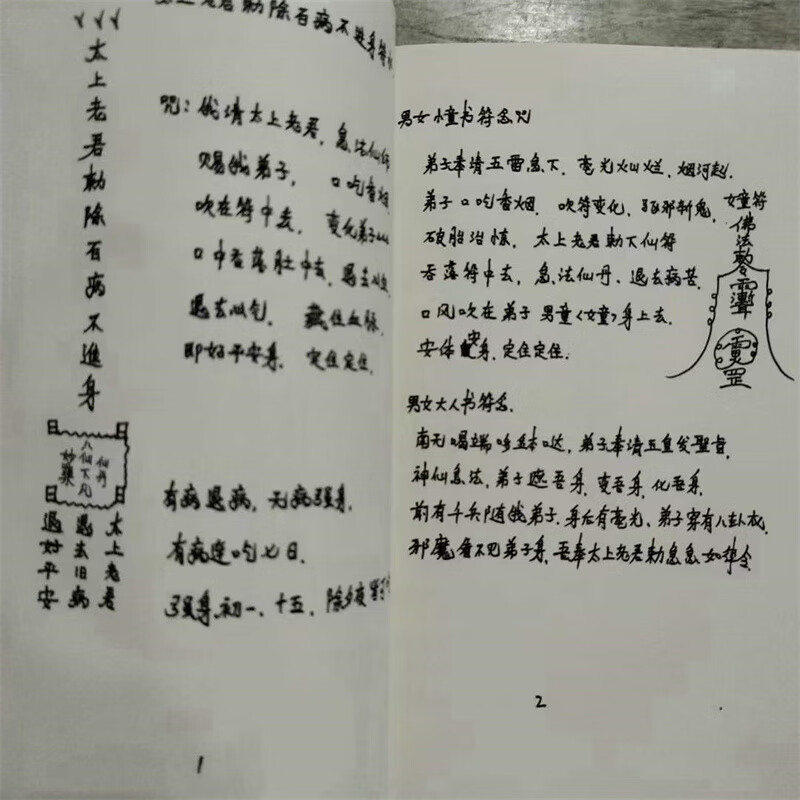 太上老君勅除百病不進身
八仙下凡
仙丹
妙藥
太上老君
退去旧病
退好平安
老君勅除百病不進身符
咒：俄请太上老君，急法仙
赐俄弟子，口吃香烟
吹在符中去，变化弟子
口中吞落肚中去，
退去，住血脉，
即好平安身，定住定住，
有病退病，无病强身，
有病连吃七日，
强身初一、十五，除夕夜
1
男女童书符念咒
弟子奉请五雷急下，毫光火山烂，烟河起，
弟子口吃香烟，吹符变化，驱邪斩鬼，
破胎治怪，太上老君勅下仙符
吞落符中去，急法仙丹、退去病苦，
口风吹在弟子男童〈女童〉身上去，
安体安身，定住定住．
女童符
佛法
罡
男女大人书符念．
南无喝，弟子奉请五皇发聖旨，
神仙急法，弟子遮吾身，变吾身，化吾身．
前有千兵随俄弟子，身后有毫光、弟子穿有八卦衣，
邪魔看不见弟子身，吾奉太上老君勅急急如律令
2